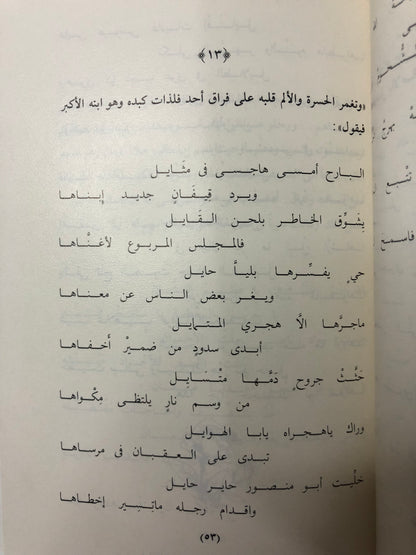 ﴿١٣﴾
«وتغمر الحسرة والألم قلبه على فراق أحد فلذات كبده وهو ابنه الأكبر
فيقول»:
البارح أمسى هاجسى فى مثَايل
ويرد قِيفَانٍ جديد إبناها
يِشَوِّق الخاطر بلحن القَايل
فالمجلس المربوع لأغنَّاها
حيٍ يفسِّرها بلياَّ حايل
ويغر بعض الناس عن معناها
ماجرَّها الاَّ هجري المتـايل
أبدى سدودٍ من ضميرْ أخفاها
خَنَّتْ جروحٍ دَمَّها متْسَايل
من وسم نارٍ يلتظى مِكْواها
وراك ياهجراه يابا الهوايل
تبدى على العقبان فى مرساها
خلِّيت أبو منصور حاير حايل
واقدام رجله ماتيسر إخطاها
(٥٣)